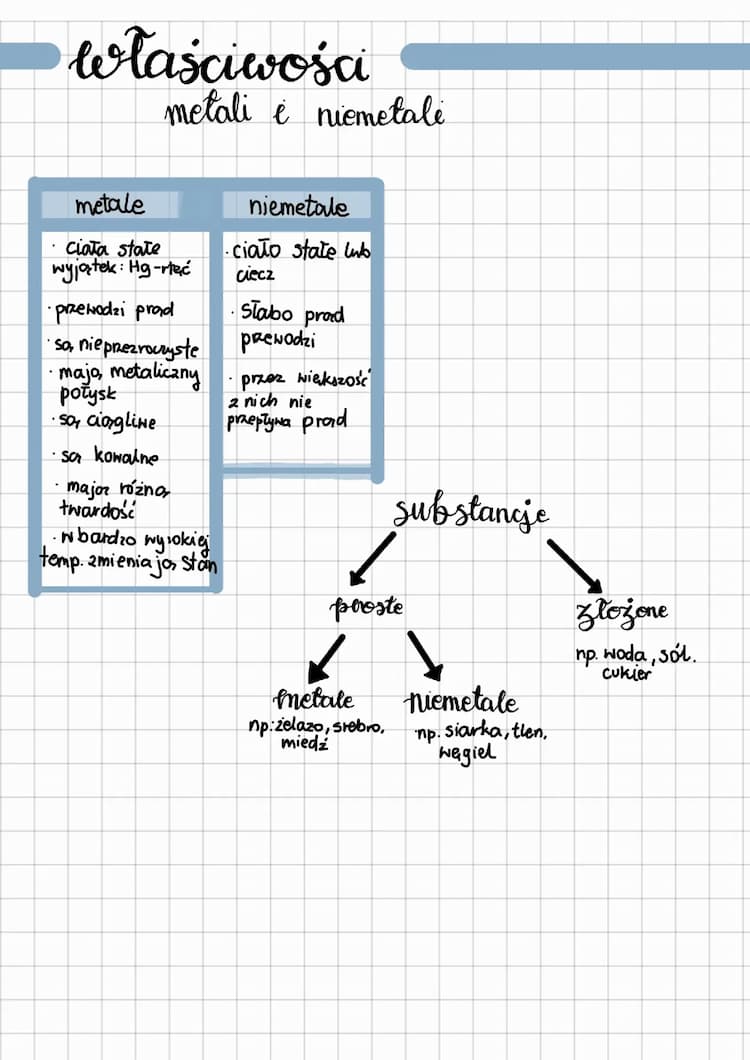 właściwości
metali i niemetali
metale
· ciała stałe
wyjątek: Hg-rtęć
· przewodzi prąd
· są nieprzezroczyste
· mają metaliczny
połysk
· są ciągliwe
· są kowalne
· mają różną
twardość
· w bardzo wysokiej
temp. zmieniają stan
niemetale
· ciało stałe lub
ciecz
· słabo prąd
przewodzi
· przez większość
z nich nie
przepływa prąd
substancje
proste
złożone
np. woda, sól.
cukier
metale
np: żelazo, srebro,
miedź
niemetale
np. siarka, tlen,
węgiel